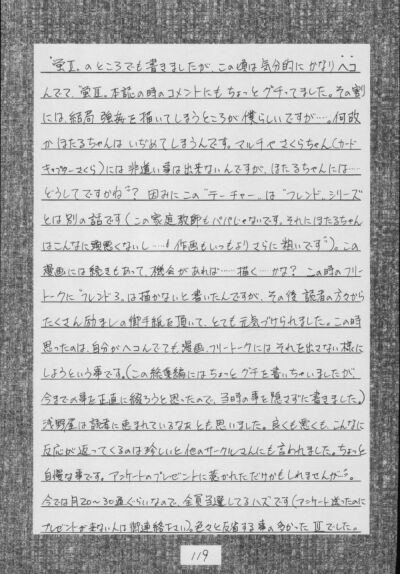 "蛍Ⅱ"のところでも書きましたが、この頃は気分的にかなりヘコ
んでて、"蛍Ⅱ"本誌の時のコメントにもちょっとグチってました。その割
には、結局 強姦を描いてしまうところが僕らしいですが…。何故
かほたるちゃんはいぢめてしまうんです。マルチやさくらちゃん(カード
キャプターさくら)には非道い事は出来ないんですが、ほたるちゃんには…
どうしてですかねぇ?因みにこの"テーチャー"は"フレンド"シリーズ
とは別の話です(この家庭教師もパパじゃないです。それにほたるちゃん
はこんなに頭悪くないし……!作画もいつもよりさらに粗いです〃)。この
漫画には続きもあって、機会があれば……描く…かな? この時のフリー
トークに"フレンド3"は描かないと書いたんですが、その後 読者の方々から
たくさん励ましの御手紙を頂いて、とても元気づけられました。この時
思ったのは、自分がヘコんでても、漫画、フリートークにはそれを出さない様に
しようという事です。(この総集編にはちょっとグチを書いちゃいましたが、
今までの事を正直に綴ろうと思ったので、当時の事を隠さずに書きました。)
浅野屋は読者に恵まれているなぁとも思いました。良くも悪くも、こんなに
反応が返ってくるのは珍しいと他のサークルさんにも言われました。ちょっと
自慢な事です。アンケートのプレゼントに惹かれただけかもしれませんが〃。
今では月20〜30通ぐらいなので、全員当選してるハズです(アンケート送ったのに
プレゼントが来ない人は御連絡下さい)。色々と反省する事の多かったⅢでした。
119